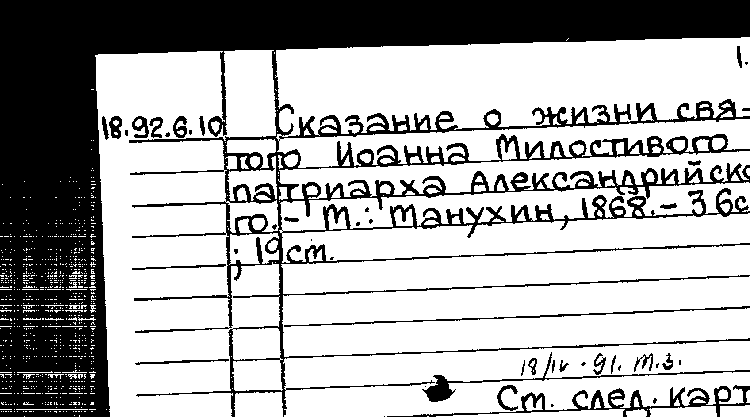 1.
18.92.6.10 Сказание о жизни свя-
того Иоанна Милостивого
патриарха Александрийско
го.- М.: Манухин, 1868.- 36с
; 19см.
18/IV-91. М.З.
См. след. карт